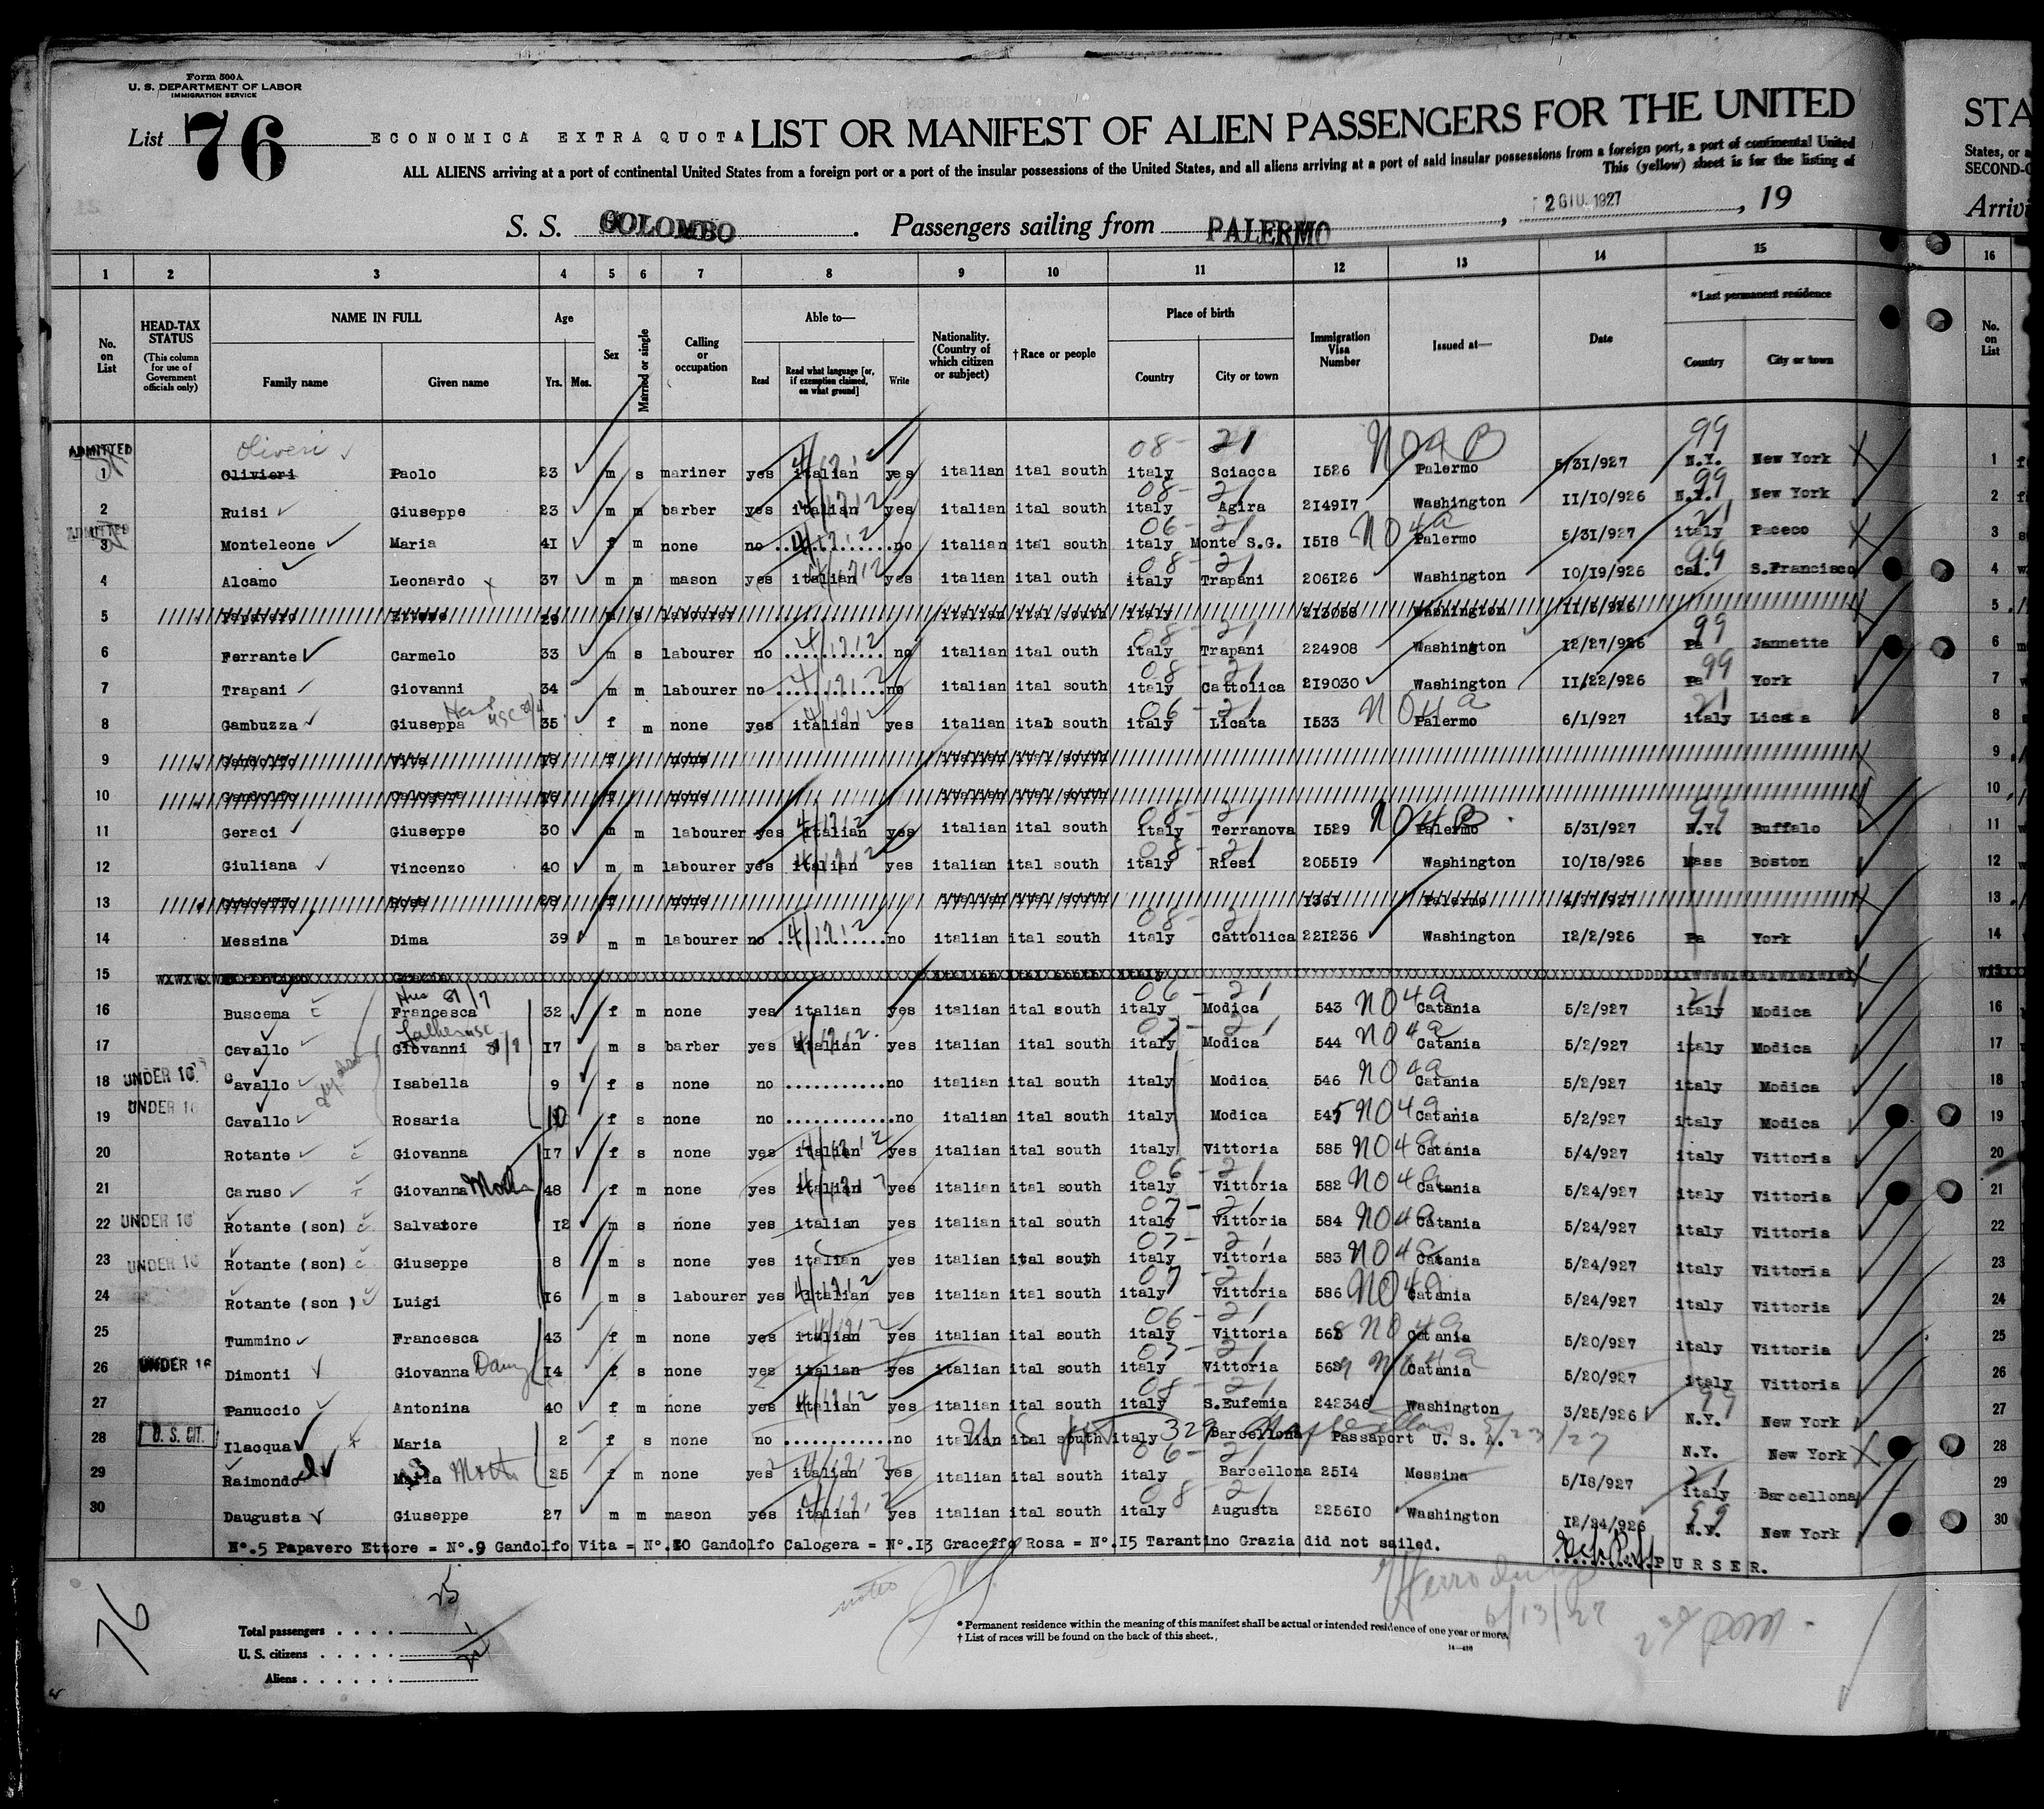 Form 500A
U. S. DEPARTMENT OF LABOR
IMMIGRATION SERVICE
List 76 ECONOMICA EXTRA QUOTA LIST OR MANIFEST OF ALIEN PASSENGERS FOR THE UNITED STA
ALL ALIENS arriving at a port of continental United States from a foreign port or a port of the insular possessions of the United States, and all aliens arriving at a port of said insular possessions from a foreign port, a port of continental United States, or a
This (yellow) sheet is for the listing of SECOND-C
S. S. COLOMBO. Passengers sailing from PALERMO, 2 GIU. 1927, 19 Arrivi
1 2 3 4 5 6 7 8 9 10 11 12 13 14 15 16
No. on List
HEAD-TAX STATUS
(This column for use of Government officials only)
NAME IN FULL
Family name Given name
Age
Yrs. Mos.
Sex
Married or single
Calling or occupation
Able to—
Read Read what language [or, if exemption claimed, on what ground] Write
Nationality. (Country of which citizen or subject)
†Race or people
Place of birth
Country City or town
Immigration Visa Number
Issued at—
Date
*Last permanent residence
Country City or town
No. on List
Oliveri 08- 21 99
ADMITTED 1 Olivieri Paolo 23 m s mariner yes italian yes italian ital south italy Sciacca 1526 Palermo 5/31/927 N.Y. New York 1
2 Ruisi Giuseppe 23 m m barber yes italian yes italian ital south italy Agira 214917 Washington 11/10/926 N.Y. New York 2
ADMITTED 3 Monteleone Maria 41 f m none no ............ no italian ital south italy Monte S.G. 1518 NO4a Palermo 5/31/927 italy Paceco 3
4 Alcamo Leonardo x 37 m m mason yes italian yes italian ital outh italy Trapani 206126 Washington 10/19/926 Cal. S.Francisco 4
5 Papavero Ettore 29 m s labourer italian ital south italy 213058 Washington 11/5/926 5
6 Ferrante Carmelo 33 m s labourer no ............ no italian ital outh italy Trapani 224908 Washington 12/27/926 Pa Jannette 6
7 Trapani Giovanni 34 m m labourer no ............ no italian ital south italy Cattolica 219030 Washington 11/22/926 Pa York 7
8 Gambuzza Giuseppa 35 f m none yes italian yes italian ital south italy Licata 1533 NO4a Palermo 6/1/927 italy Licata 8
9 Gandolfo Vita 18 f none italian ital south 9
10 Gandolfo Calogera 16 f none italian ital south 10
11 Geraci Giuseppe 30 m m labourer yes italian yes italian ital south italy Terranova 1529 NO4B Palermo 5/31/927 N.Y. Buffalo 11
12 Giuliana Vincenzo 40 m m labourer yes italian yes italian ital south italy Riesi 205519 Washington 10/18/926 Mass Boston 12
13 Graceffo Rosa 28 f none italian ital south 1361 Palermo 4/77/927 13
14 Messina Dima 39 m m labourer no ............ no italian ital south italy Cattolica 221236 Washington 12/2/926 Pa York 14
15 Grazia italian ital south italy 15
16 Buscema Francesca 32 f m none yes italian yes italian ital south italy Modica 543 NO4a Catania 5/2/927 italy Modica 16
17 Cavallo Giovanni 17 m s barber yes italian yes italian ital south italy Modica 544 NO4a Catania 5/2/927 italy Modica 17
18 UNDER 16 Cavallo Isabella 9 f s none no ............ no italian ital south italy Modica 546 NO4a Catania 5/2/927 italy Modica 18
19 UNDER 16 Cavallo Rosaria 10 f s none no ............ no italian ital south italy Modica 545 NO4a Catania 5/2/927 italy Modica 19
20 Rotante Giovanna 17 f s none yes italian yes italian ital south italy Vittoria 585 NO4a Catania 5/4/927 italy Vittoria 20
21 Caruso Giovanna Moth 48 f m none yes italian yes italian ital south italy Vittoria 582 NO4a Catania 5/24/927 italy Vittoria 21
22 UNDER 16 Rotante (son) Salvatore 12 m s none yes italian yes italian ital south italy Vittoria 584 NO4a Catania 5/24/927 italy Vittoria 22
23 UNDER 16 Rotante (son) Giuseppe 8 m s none yes italian yes italian ital south italy Vittoria 583 NO4a Catania 5/24/927 italy Vittoria 23
24 Rotante (son ) Luigi 16 m s labourer yes italian yes italian ital south italy Vittoria 586 NO4a Catania 5/24/927 italy Vittoria 24
25 Tummino Francesca 43 f m none yes italian yes italian ital south italy Vittoria 568 NO4a Catania 5/20/927 italy Vittoria 25
26 UNDER 16 Dimonti Giovanna 14 f s none yes italian yes italian ital south italy Vittoria 569 NO4a Catania 5/20/927 italy Vittoria 26
27 Panuccio Antonina 40 f m none yes italian yes italian ital south italy S.Eufemia 242346 Washington 3/25/926 N.Y. New York 27
28 U. S. CIT. Ilacqua Maria 2 f s none no ............ no italian ital south italy Barcellona Passaport U. S. A. N.Y. New York 28
29 Raimondo Maria Moth 25 f m none yes italian yes italian ital south italy Barcellona 2514 Messina 5/18/927 italy Barcellona 29
30 Daugusta Giuseppe 27 m m mason yes italian yes italian ital south italy Augusta 225610 Washington 12/24/926 N.Y. New York 30
N°.5 Papavero Ettore = N°.9 Gandolfo Vita = N°.10 Gandolfo Calogera = N°.13 Graceffo Rosa = N°.15 Tarantino Grazia did not sailed.
PURSER.
76
Total passengers . . . . . 25
U. S. citizens . . . . . 1
Aliens . . . . . 24
* Permanent residence within the meaning of this manifest shall be actual or intended residence of one year or more.
† List of races will be found on the back of this sheet.
6/13/27